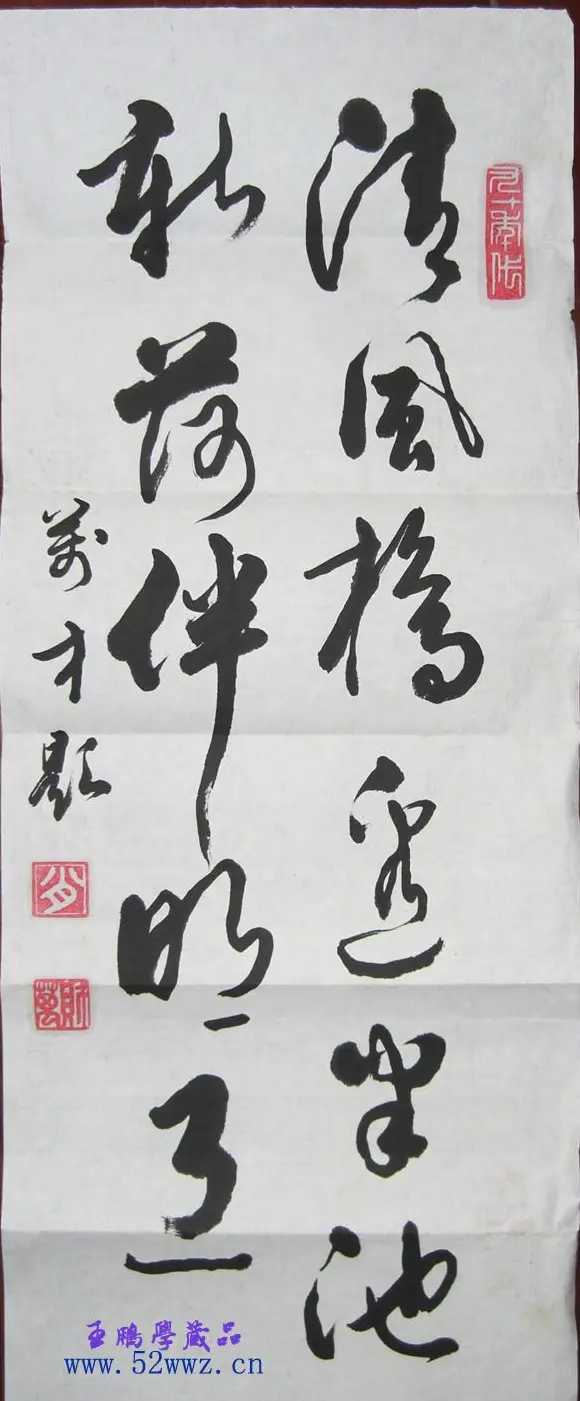 九十年代
清風橋邊半池
新荷伴明
萬才題
肖
王鵬學藏品
www.52wwz.cn